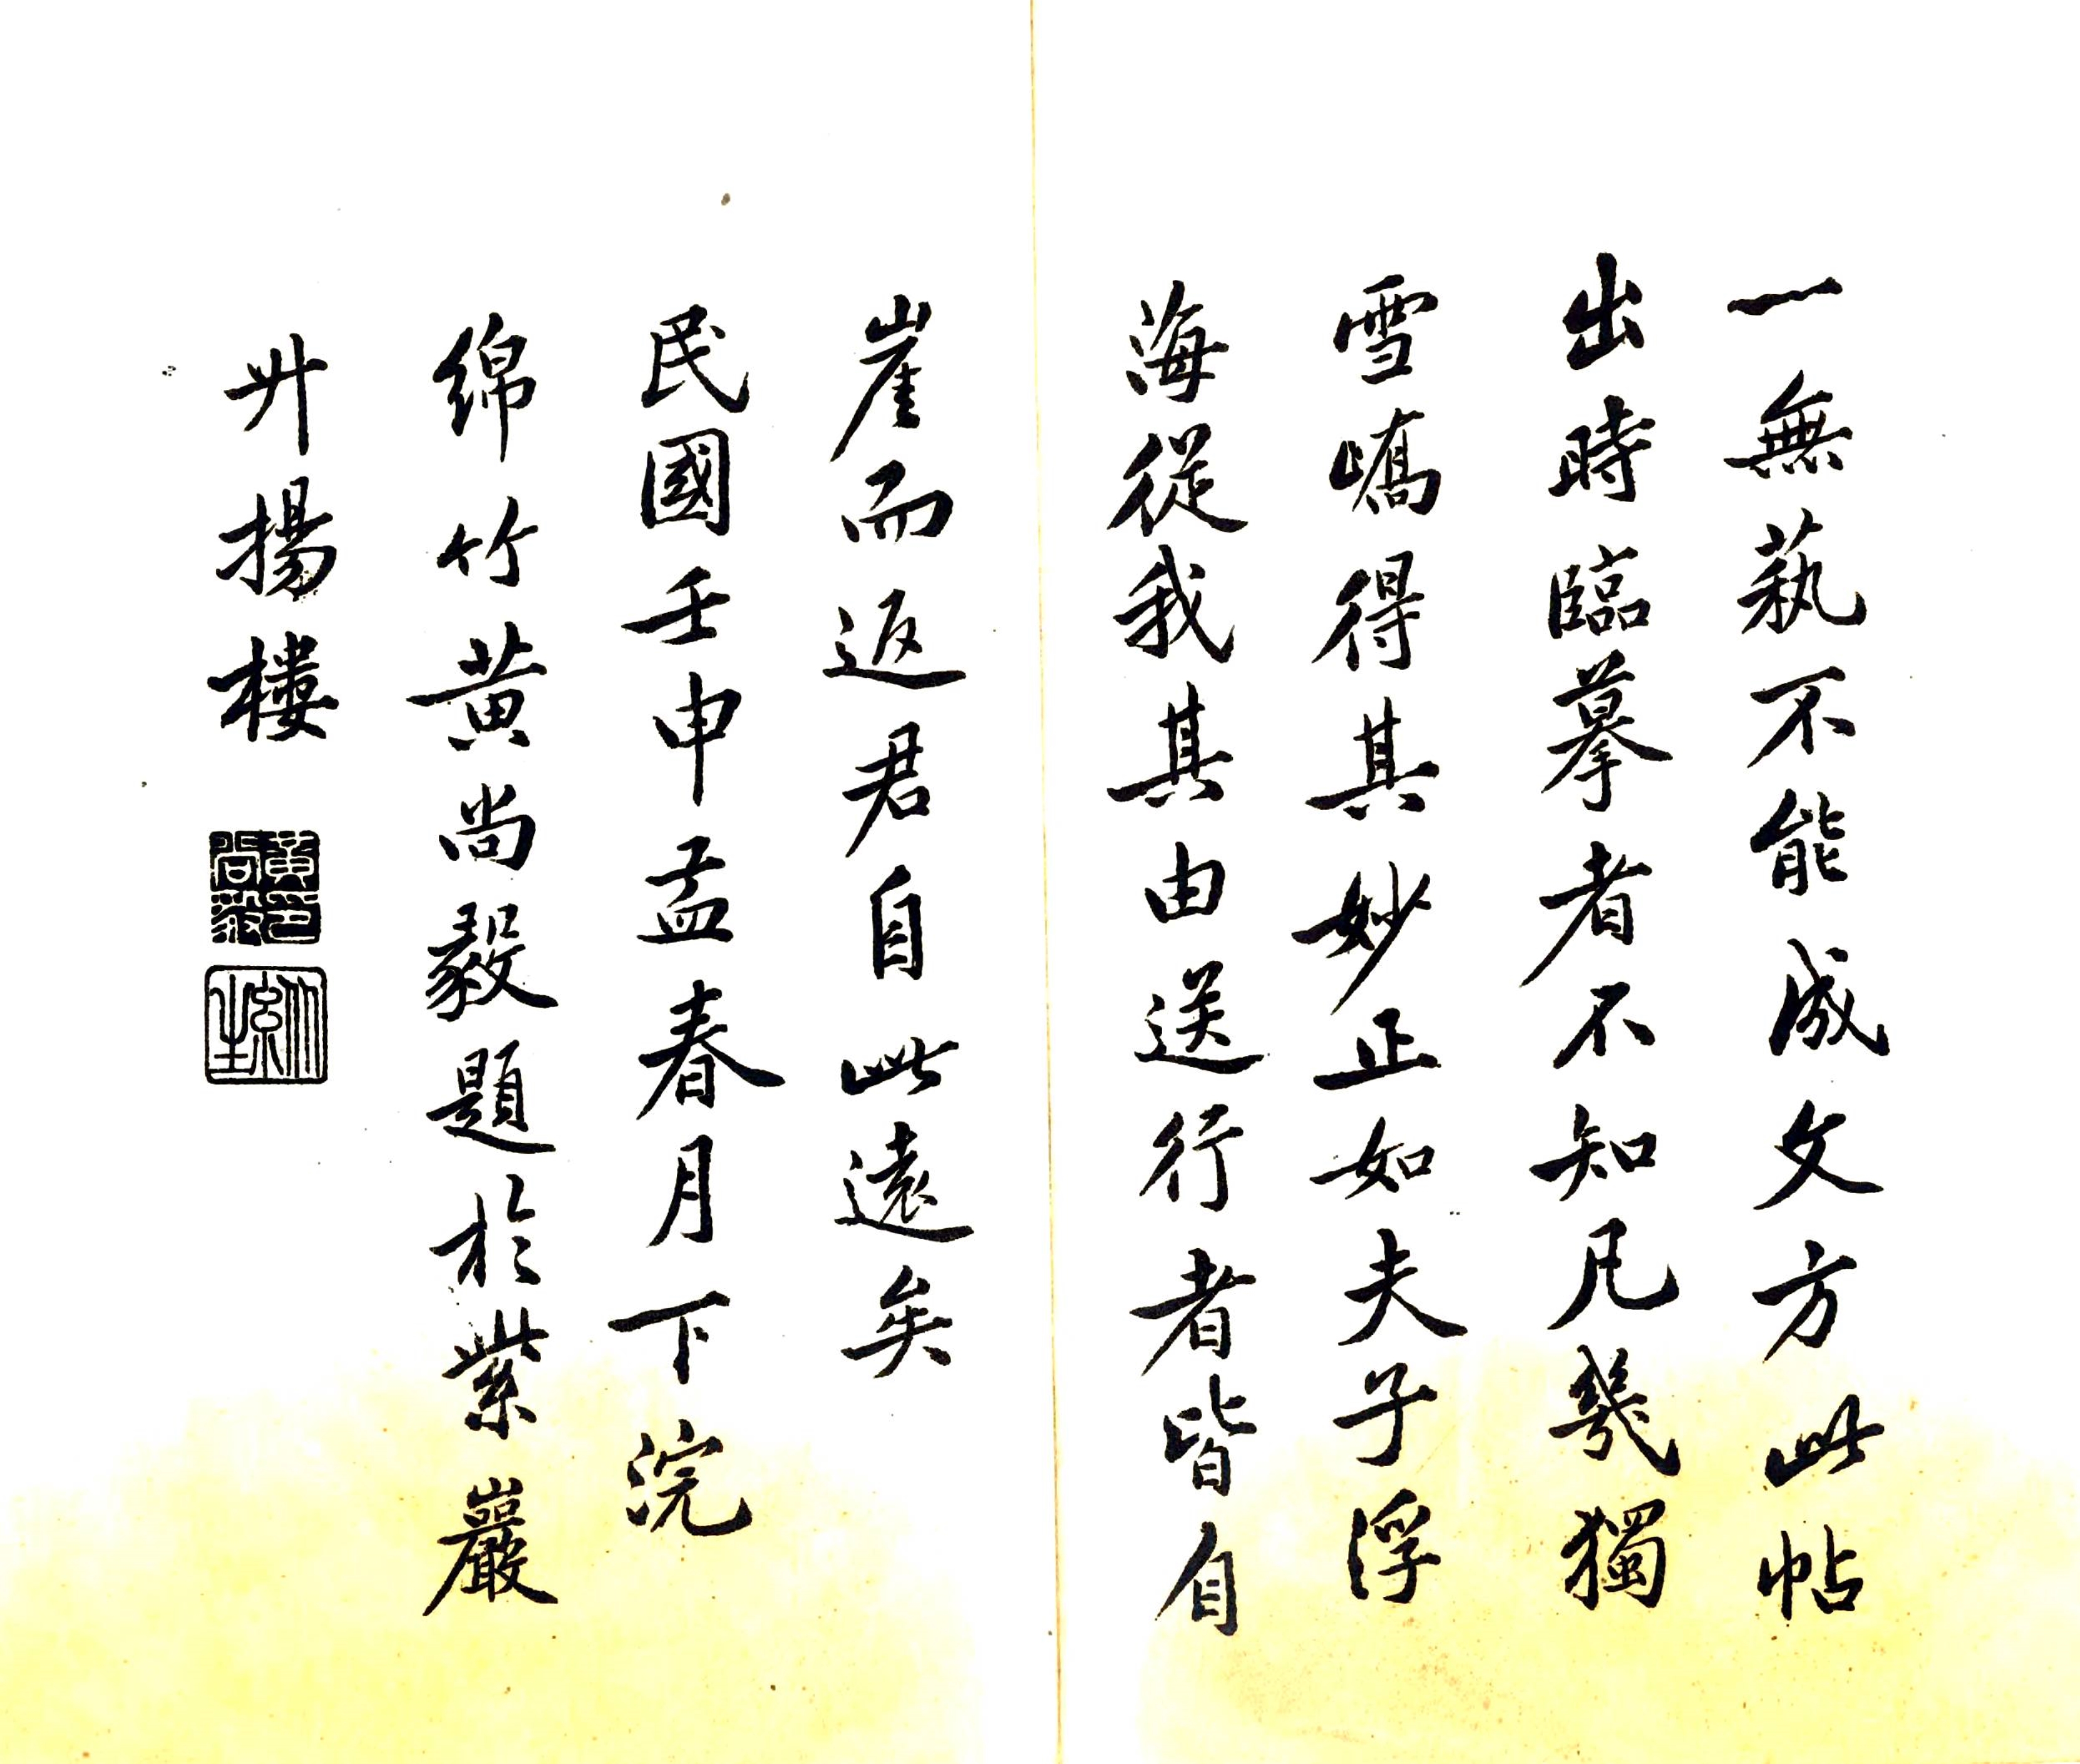 一無蓺不能成文方此帖
出時臨摹者不知凡幾獨
雪嶠得其妙正如夫子浮
海從我其由送行者皆自
崖而返君自此遠矣
民國壬申孟春月下浣
綿竹黃尚毅題於紫巖
廾揚樓
黃尚毅印